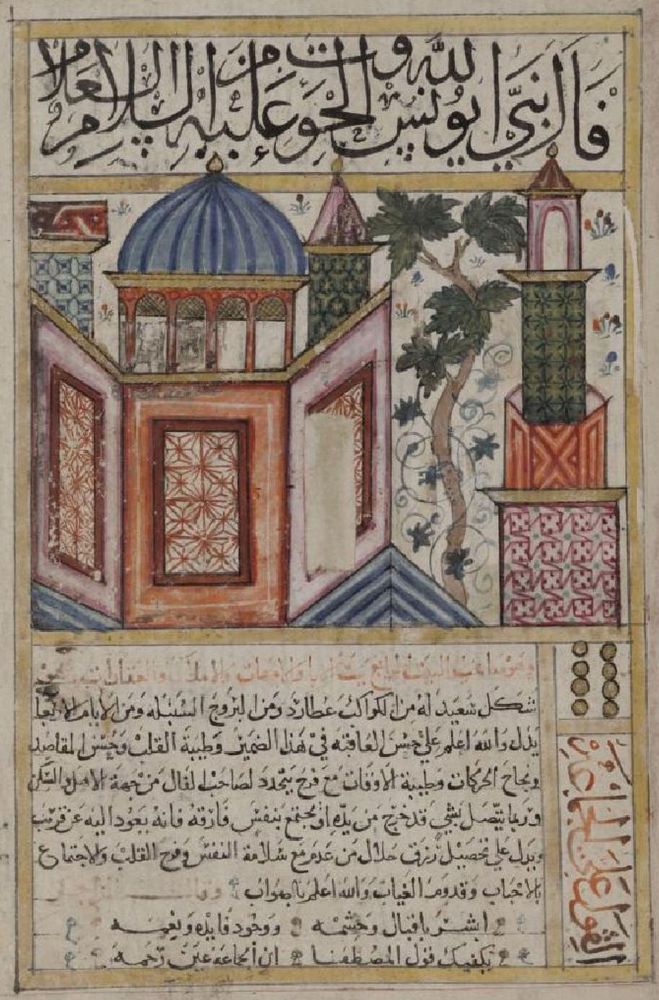 فال نبي الله يونس الحوت عليه السلام
والاملاك والعقارات
شكل سعيد له من الكواكب عطارد ومن البروج السنبله ومن الايام الاربعا
يدل والله اعلم علي حسن العاقبه في هذا الضمير وطيبة القلب وحسن المقاصد
ونجاح الحركات وطيبة الاوقات مع فرح يتجدد لصاحب الفال من جهة الاهل والسكن
وربما يتصل بشي قد خرج من يده او يجتمع بنفس فارقه فانه يعود اليه عن قريب
ويدل علي تحصيل رزق حلال من عدم مع سلامة النفس وفرح القلب والاجتماع
بالاحباب وقدوم الغياب والله اعلم بالصواب
ابشر باقبال وحشمه ووجود فايده ونعمه
يكفيك قول المصطفا ان الجماعة عين رحمه
القول علي الجماعة